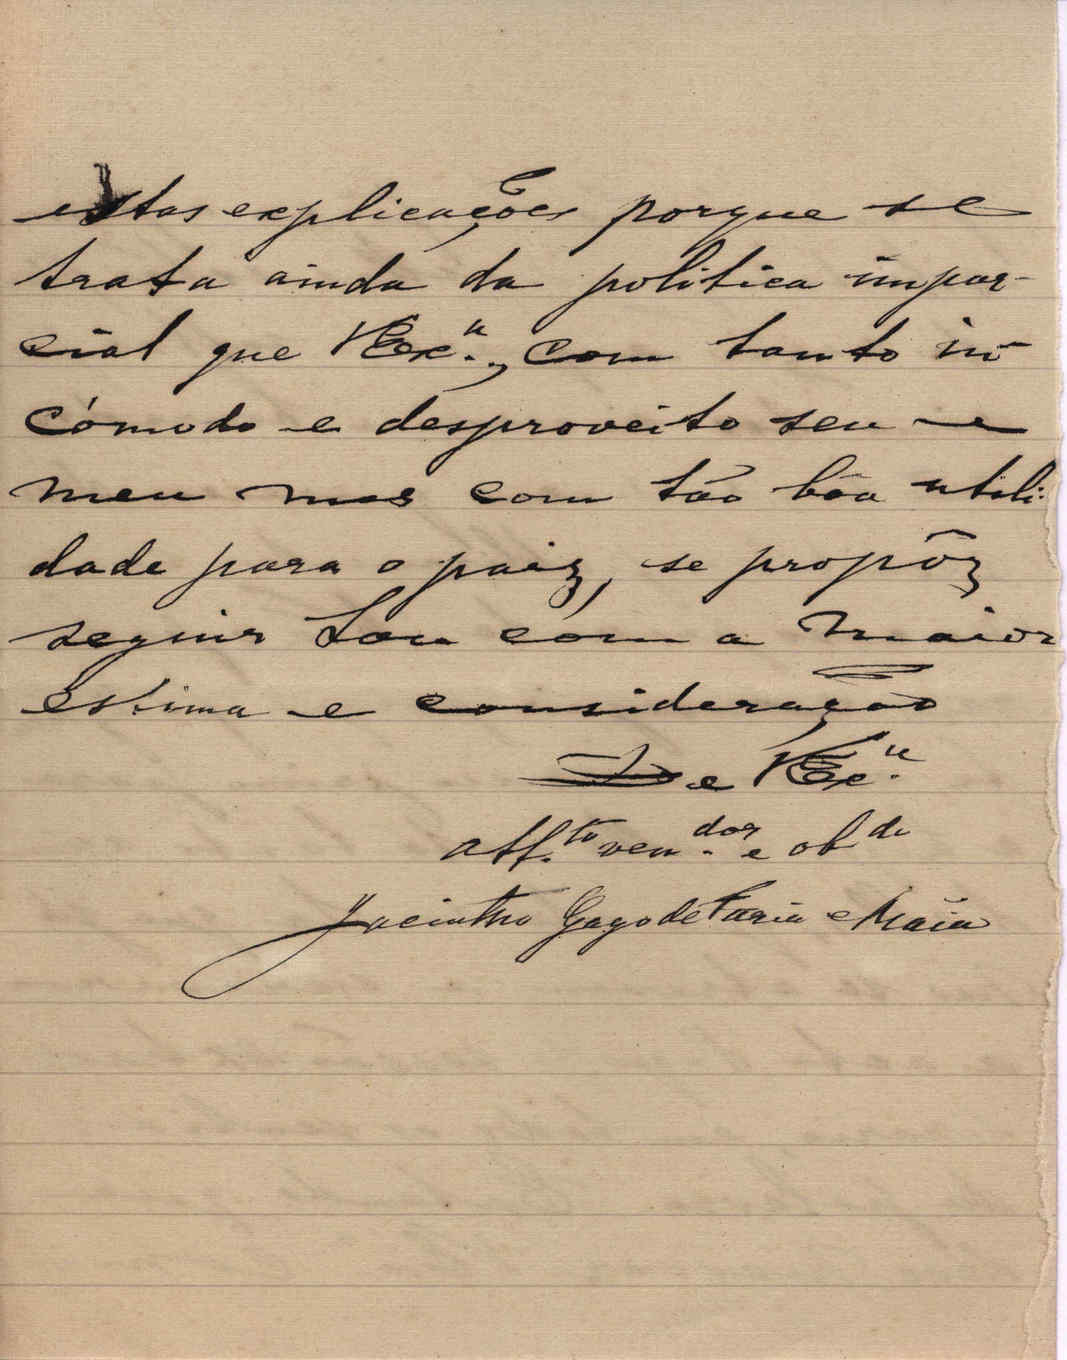 estas explicações porque se
trata ainda da politica impar-
cial que VExª., com tanto in-
cómodo e desproveito seu e
meu mas com tão bôa utili-
dade para o paiz, se propôz
seguir Sou com a maior
estima e consideração
De VExª.
Att.to ven.dor e ob.do
Jacintho Gago de Faria e Maia